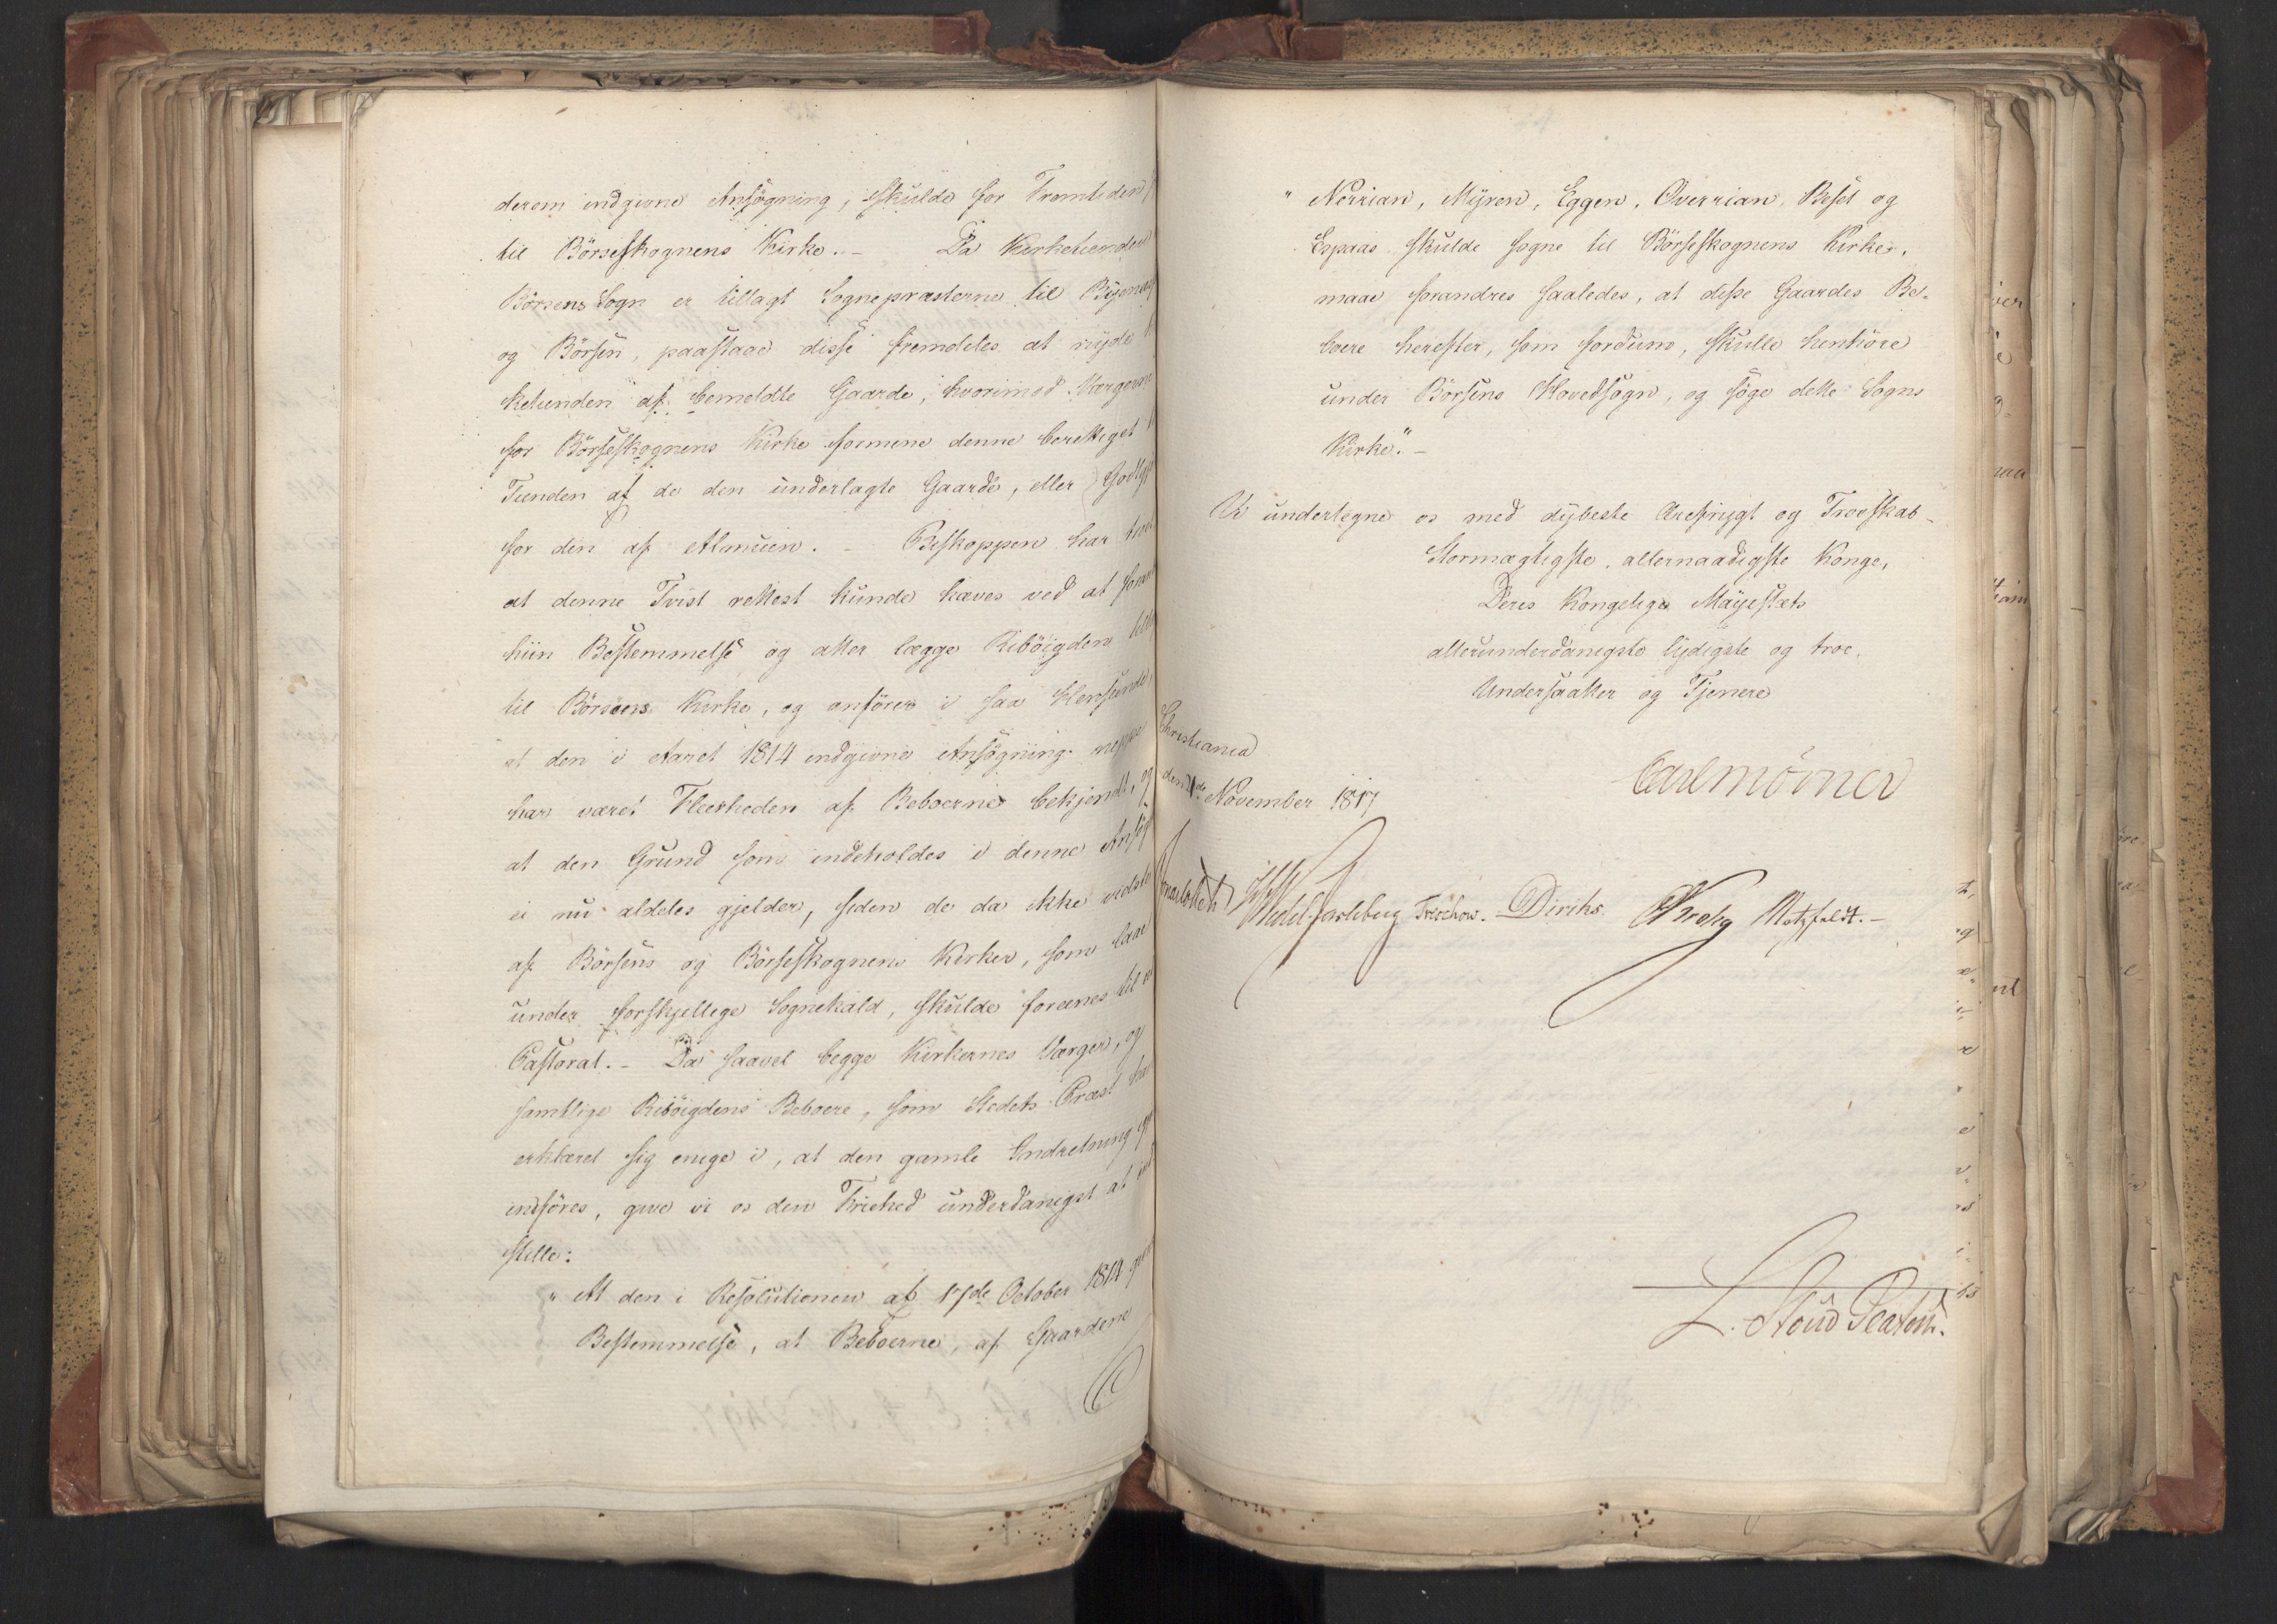 derom indgivne Ansøgning, skulde for Fremtiden
til Börseskognens Kirke. - Da Kirketienden
Börsens Sogn er tillagt Sognepræsterne til
og Börsen, paastaae disse fremdeles at nyde
ketienden af bemeldte Gaarde, hvorimod Værgerne
for Börseskognens Kirke formene denne berettiget
Tienden af de den underlagte Gaarde, eller
for den af Almuen. - Biskoppen har
at denne Tvist rettest kunde hæves ved at
hiin Bestemmelse og atter lægge Riböigden
til Börsens Kirke, og anfører i saa Henseende,
at den i Aaret 1814 indgivne Ansøgning neppe
har været Fleerheden af Beboerne bekjendt, og
at den Grund som indeholdes i denne
ei nu aldeles gjelder, siden de da ikke vidste
af Börsens og Börseskognens Kirker, som laae
under forskjellige Sognekald, skulde forenes til
Pastorat. - Da saavel begge Kirkernes Værger, og
samtlige Ribøigdens Beboere, som Stedets Præst
erklæret sig enige i, at den gamle Indretning
indføres, give vi os den Frihed underdanigst at
stille:
" At den i Resolutionen af 17de October 1814
Bestemmelse, at Beboerne, af Gaardene
" Norrian, Myren, Eggen, Overrian, Beset og
Espaas skulde sogne til Börseskognens Kirke,
maae forandres saaledes, at disse Gaardes Be-
boere herefter, som fordum, skulle henhøre
under Börsens Hovedsogn, og søge dette Sogns
Kirke". -
Vi undertegne os med dybeste Ærefrygt og Troeskab -
Stormægtigste, allernaadigste Konge,
Deres Kongelige Majestæts
allerunderdanigste lydigste og troe
Undersaatter og Tjenere
Christiania
November 1817
Carl Mörner
Wedel Jarlsberg Treschow. Diriks. Krohg Motzfeldt. -
L. Stoud Platou.